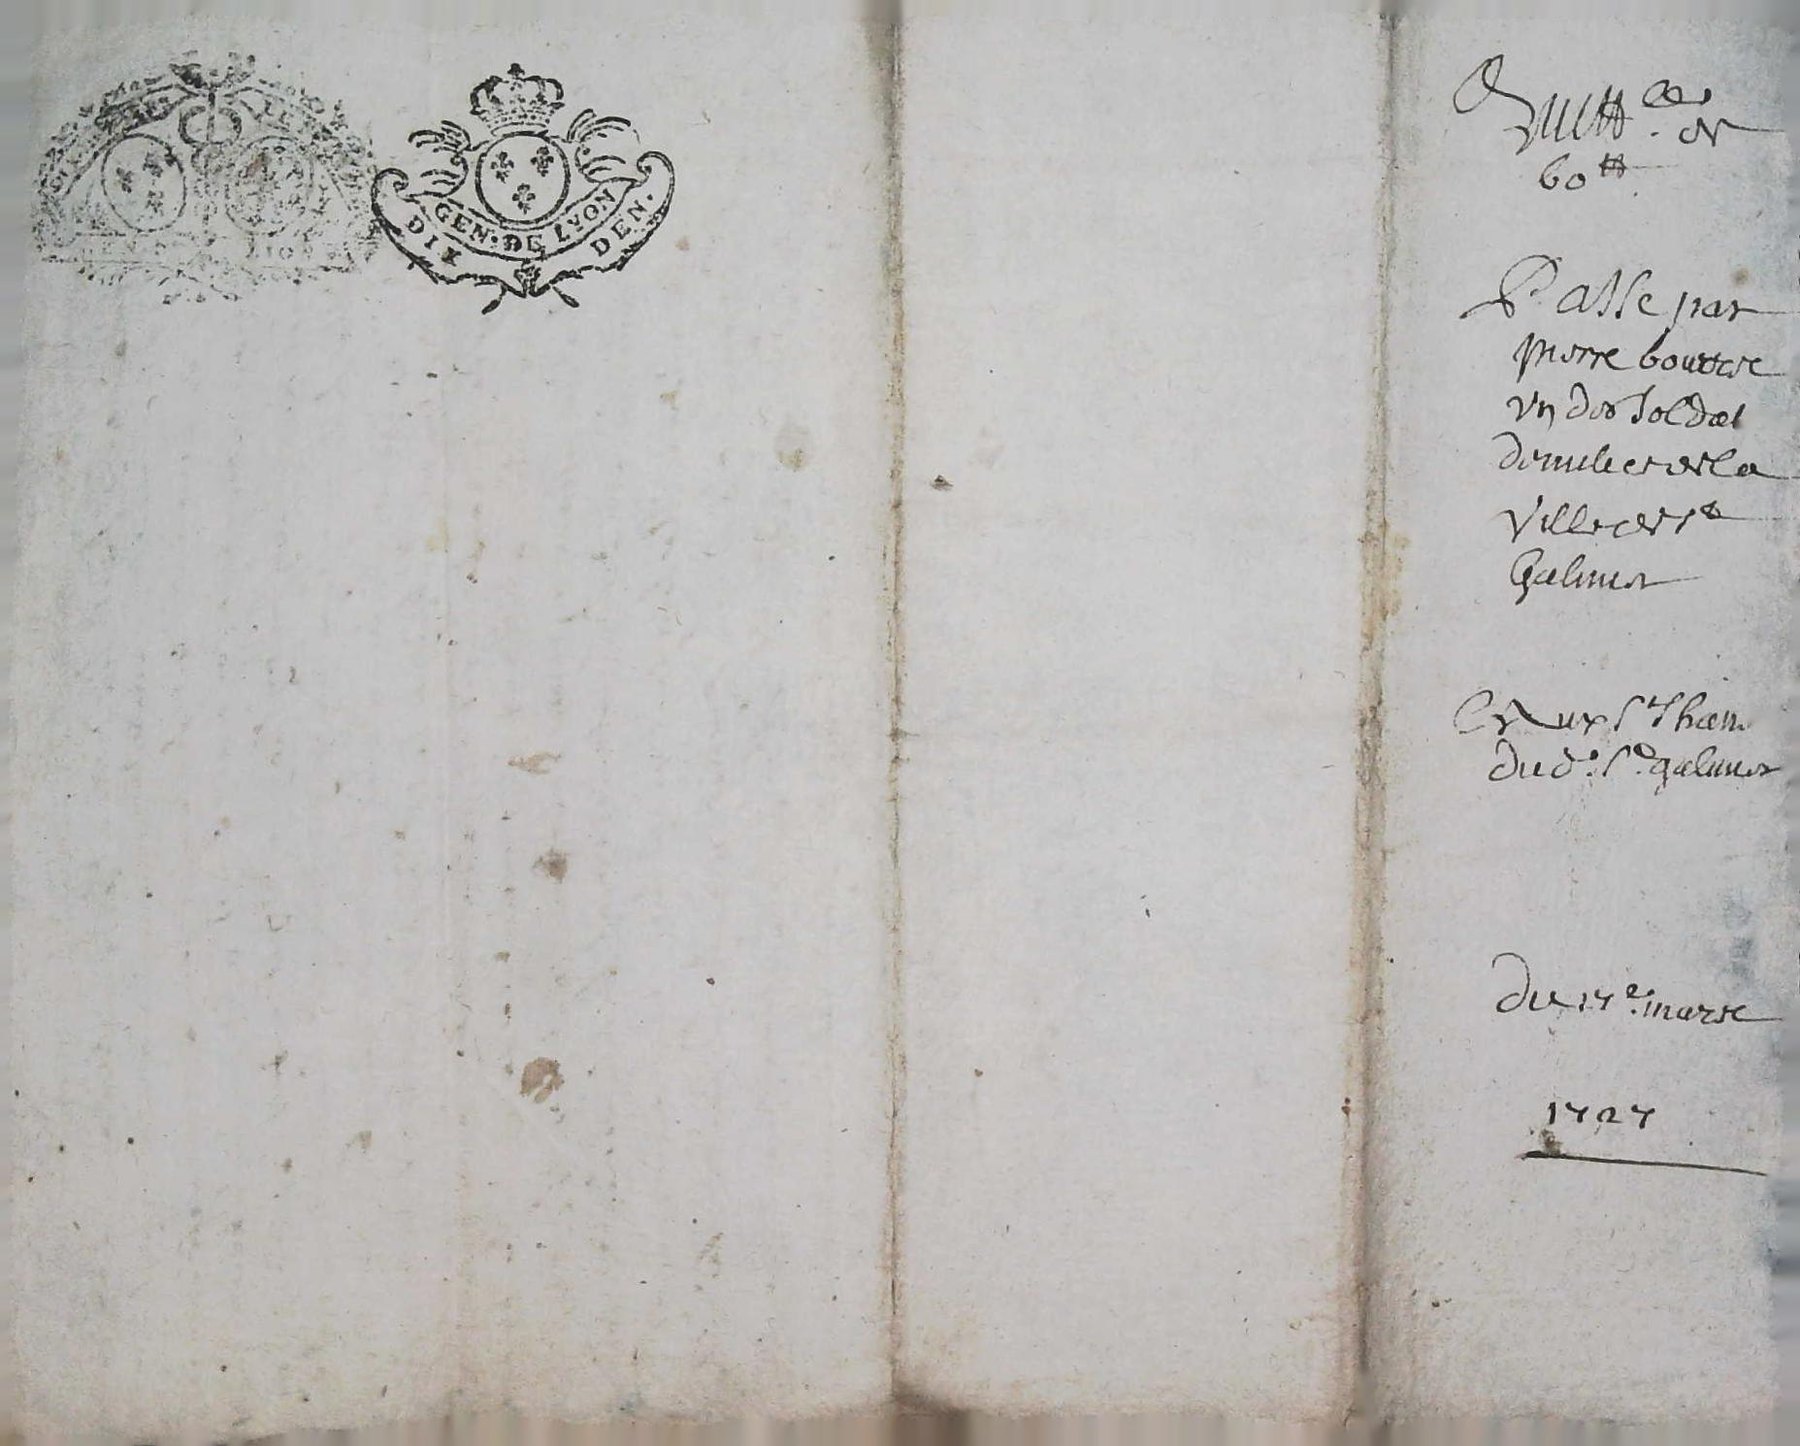 GEN. DE LYON
DIX DEN.
Quittce de
60 ₶
Passe par
pierre
un des soldat
de milice de la
Ville de St
Galmier
du d. St. galmier
Du 17e. mars
1727